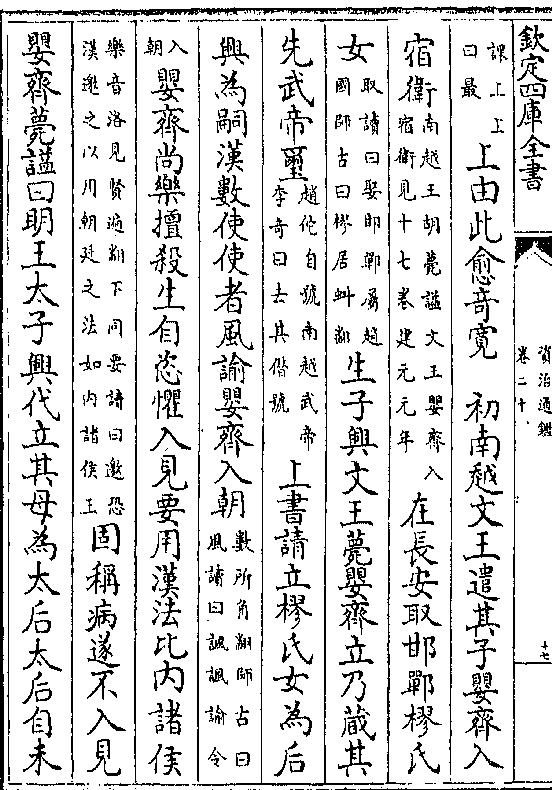 欽定四庫全書
資治通鑑
卷二十
十七
課上上曰最上由此愈竒寛　初南越文王遣其子嬰齊入
宿衛南越王胡薨諡文王嬰齊入宿衛見十七卷建元元年在長安取邯鄲樛氏
女取讀曰娶邯鄲屬趙國師古曰樛居虯翻生子興文王薨嬰齊立乃藏其
先武帝璽趙佗自號南越武帝李奇曰去其僭號上書請立樛氏女為后
興為嗣漢數使使者風諭嬰齊入朝數所角翻師古曰風讀曰諷諷諭令
入朝嬰齊尚樂擅殺生自恣懼入見要用漢法比内諸侯
樂音洛見賢遍翻下同要讀曰邀恐漢邀之以用朝廷之法如内諸侯王固稱病遂不入見
嬰齊薨諡曰明王太子興代立其母為太后太后自未